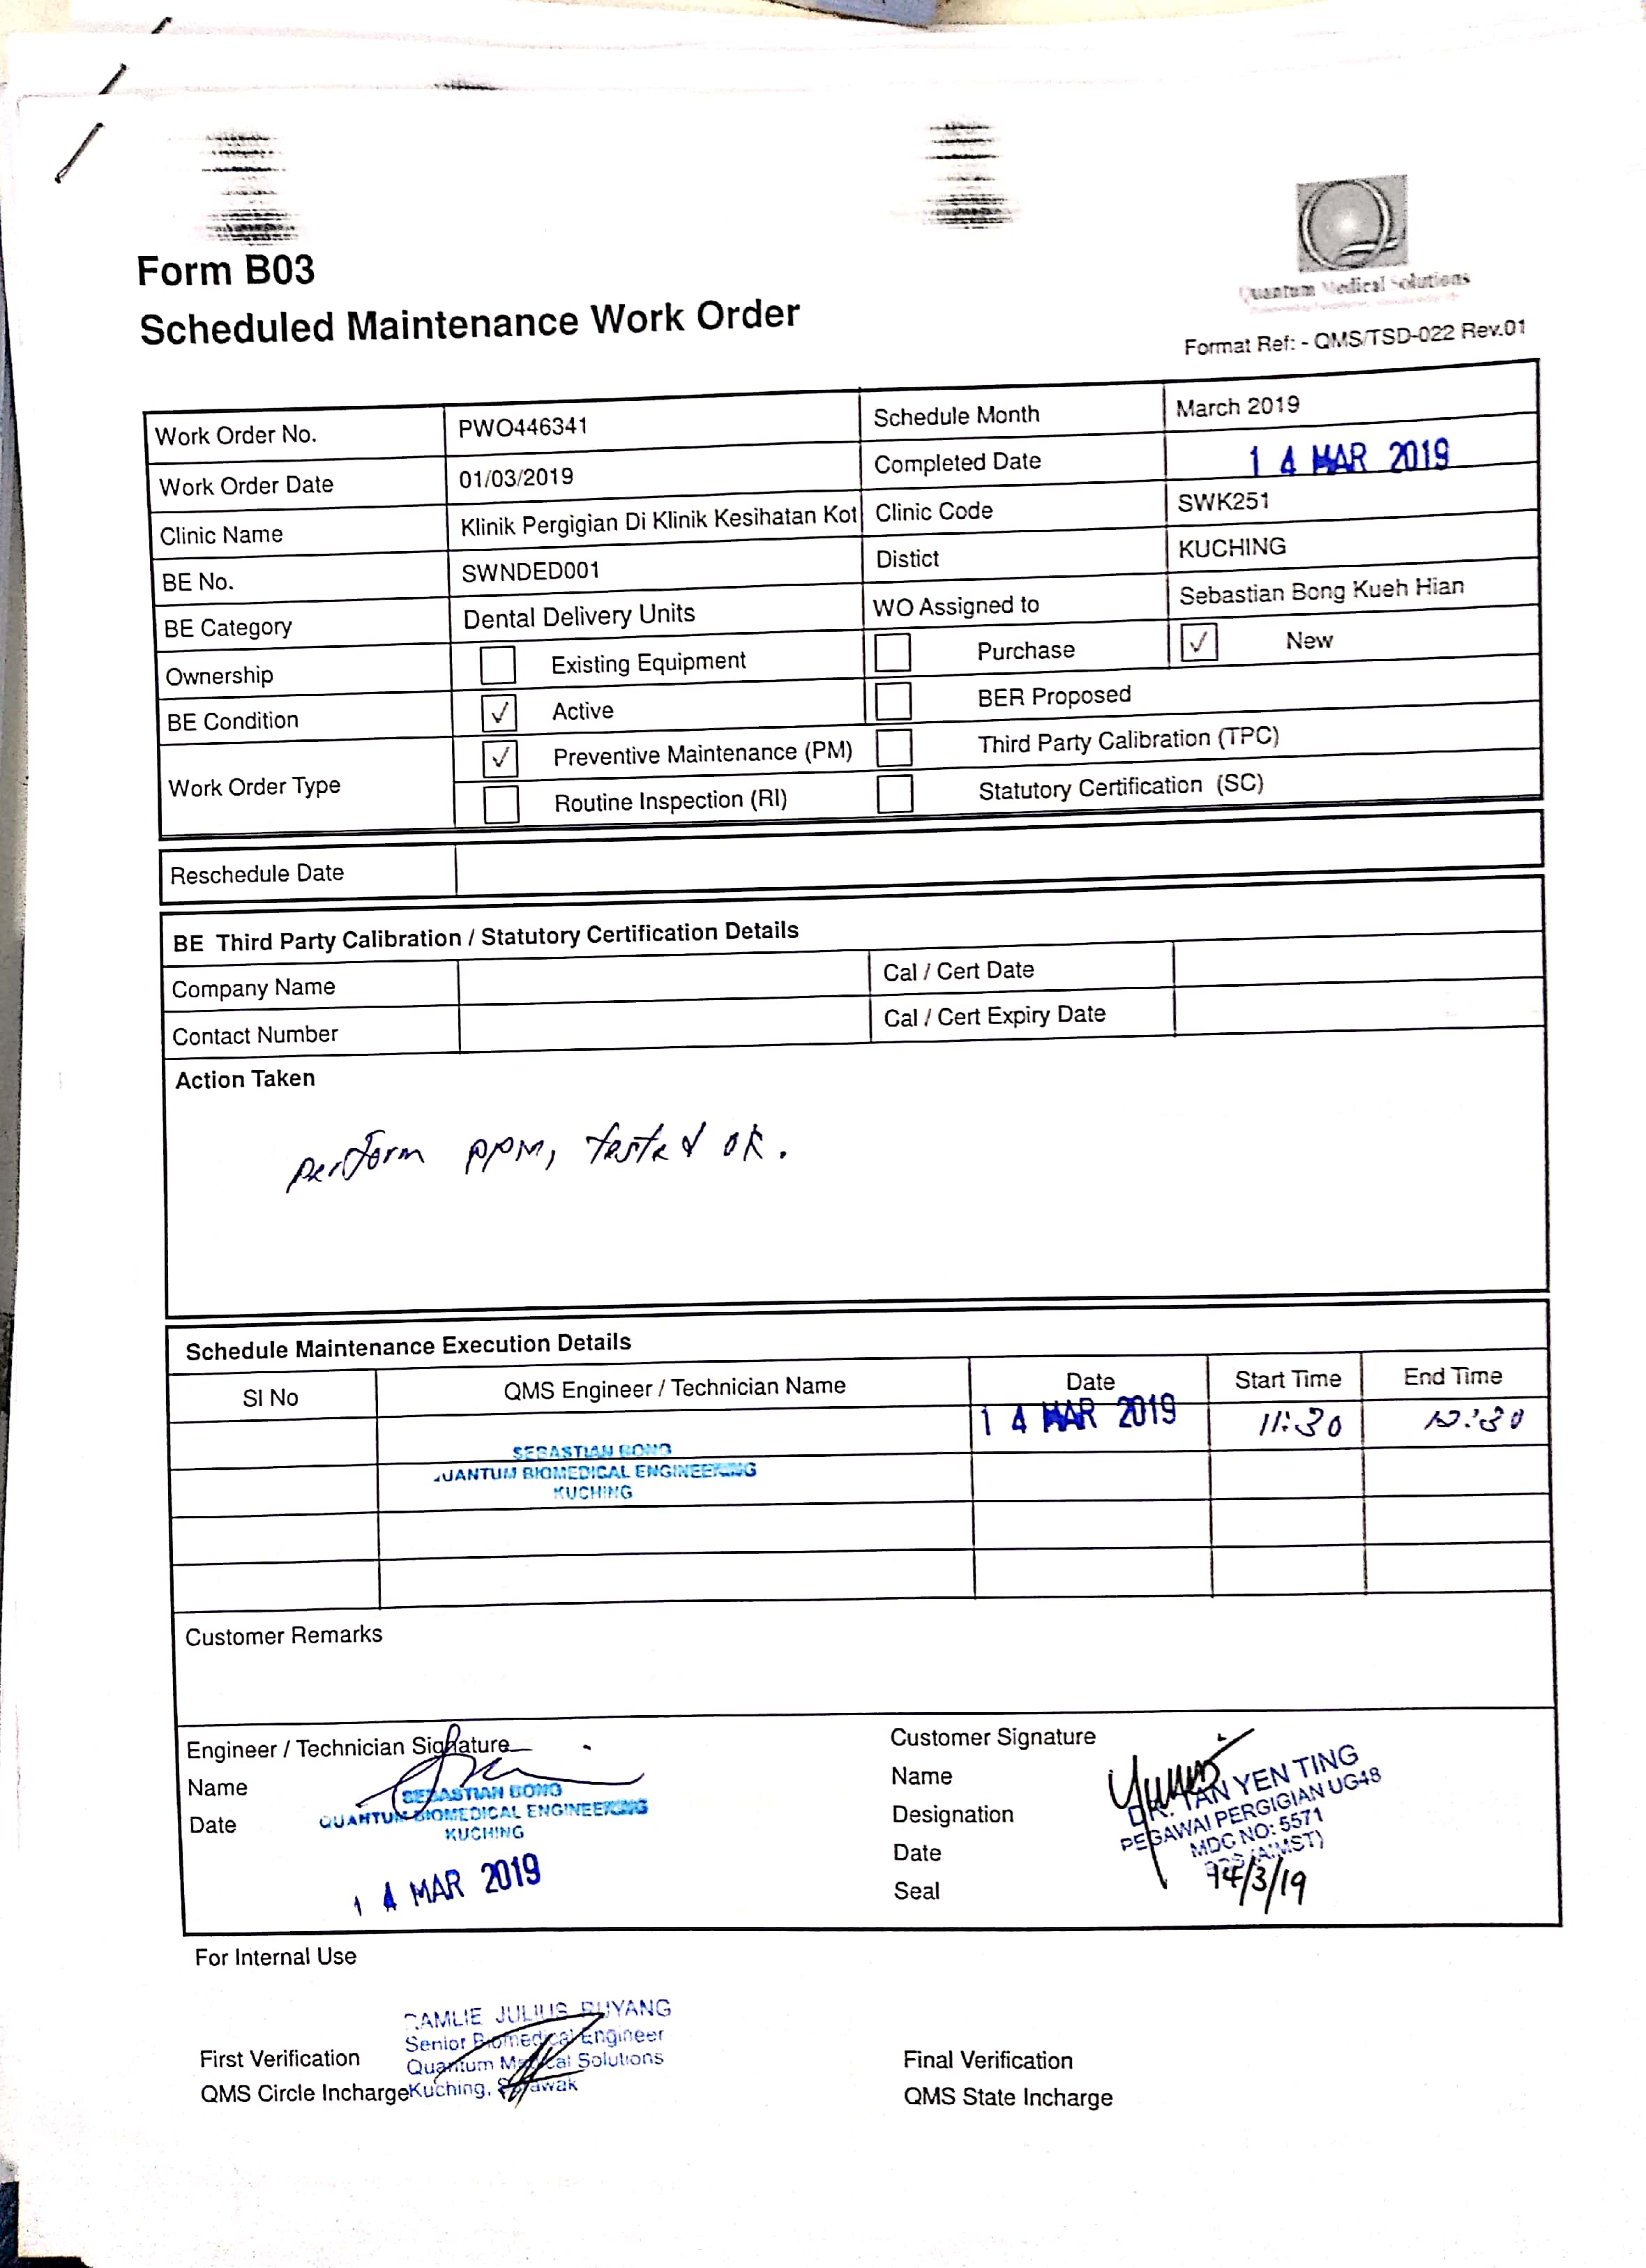 Quantum Medical Solutions
Form B03
Scheduled Maintenance Work Order
Format Ref: - QMS/TSD-022 Rev.01
Work Order No. PWO446341 Schedule Month March 2019
Work Order Date 01/03/2019 Completed Date 14 MAR 2019
Clinic Name Klinik Pergigian Di Klinik Kesihatan Kot Clinic Code SWK251
BE No. SWNDED001 Distict KUCHING
BE Category Dental Delivery Units WO Assigned to Sebastian Bong Kueh Hian
Ownership Existing Equipment Purchase ✓ New
BE Condition ✓ Active BER Proposed
Work Order Type ✓ Preventive Maintenance (PM) Third Party Calibration (TPC)
Routine Inspection (RI) Statutory Certification (SC)
Reschedule Date
BE Third Party Calibration / Statutory Certification Details
Company Name Cal / Cert Date
Contact Number Cal / Cert Expiry Date
Action Taken
perform ppm, tested ok.
Schedule Maintenance Execution Details
SI No QMS Engineer / Technician Name Date Start Time End Time
14 MAR 2019 11:30 12:30
SEBASTIAN BONG
QUANTUM BIOMEDICAL ENGINEERING
KUCHING
Customer Remarks
Engineer / Technician Signature
Name
Date
SEBASTIAN BONG
QUANTUM BIOMEDICAL ENGINEERING
KUCHING
14 MAR 2019
Customer Signature
Name
Designation
Date
Seal
DR. TAN YEN TING
PEGAWAI PERGIGIAN UG48
MDC NO: 5571
BDS (AIMST)
14/3/19
For Internal Use
First Verification
QMS Circle Incharge
RAMLIE JULIUS BUYANG
Senior Biomedical Engineer
Quantum Medical Solutions
Kuching, Sarawak
Final Verification
QMS State Incharge